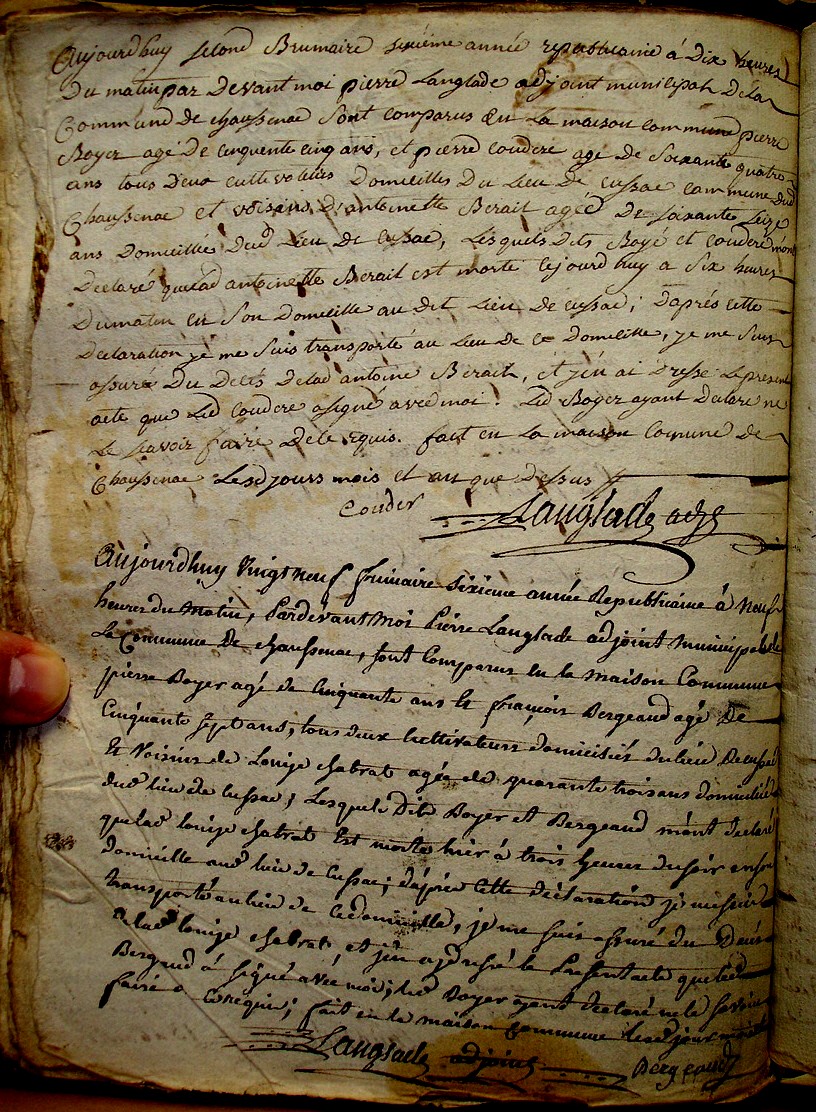 Aujourdhuy second Brumaire sixiéme année republicaine à Dix heures
Du matin par Devant moi pierre Langlade adjoint municipal Dela
Commune de chaussenac sont comparus en La maison commune pierre
Boyer agé De cinquente cinq ans, et pierre couderc age de Soixante quatre
ans tous Deux cultivateurs Domicilles Du Lieu De cussac commune dud
Chaussenac et voisins D'antoinette Berail ageé De soixante seize
ans Domicillié Dud Lieu De Cussac, Lesquels Dits Boyé et couderc mont
Declaré quelad antoinette Berail est morte cejourdhuy a Six heures
Du matin en Son Domicille au dit Lieu De cussac; Daprés cette
Declaration je me Suis transporté au Lieu De ce Domicille, je me Suis
assuré Du Decés Delad antoine Berail, et j'en ai Dressé Le present
acte que Led Couderc a signé avec moi. Led Boyer ayant Declare ne
Le scavoir faire De ce requis. fait en La maison Comune De
Chaussenac Lesd jours mois et an que Dessus
Couder
Langlade adj
Aujourdhuy Vingt neuf frimaire Sixieme année Republicaine à Neuf
heures du Matin, Pardevant Moi Pierre Langlade adjoint Municipal de
La Commune De chaussenac, sont Comparus en la Maison Commune
pierre Boyer agé de Cinquante ans et françois Bergeaud agé De
Cinquante sept ans, tous deux Cultivateurs domiciliés du lieu De cussac
Et Voisins de Louise chabrat agée de quarante trois ans domiciliée
dud lieu de Cussac; Lesquels Dits Boyer et Bergeaud m'ont declaré
quelad louise chabrat Est morte hier à trois heures du soir en son
domicille aud lieu de Cussac; d'après Cette déclaration je me suis
transporté au lieu de Ce domicille, je me suis assuré du Décés
delad louise chabrat et j'en ai dressé le Present acte que led
Bergeaud à signé avec moi; led Boyer ayant declaré ne le savoir
faire a Ce requis; fait en la maison Commune lesd jour mois
Langlade adjoint Bergeaud